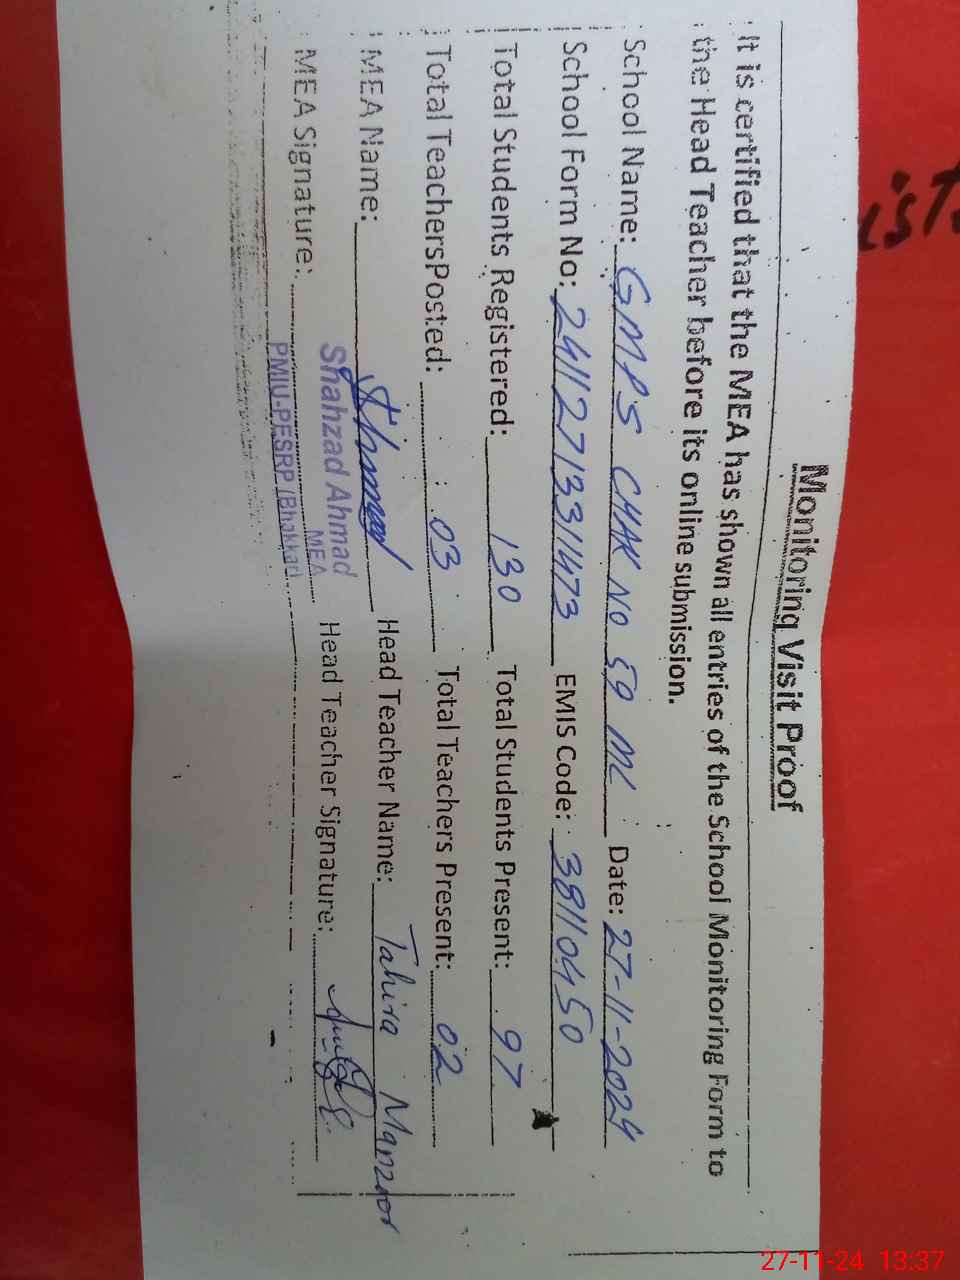 Monitoring Visit Proof
It is certified that the MEA has shown all entries of the School Monitoring Form to
the Head Teacher before its online submission.
School Name: GMPS CHAK NO 59 ML Date: 27-11-2024
School Form No: 24112713311473 EMIS Code: 38110450
Total Students Registered: 130 Total Students Present: 97
Total TeachersPosted: 03 Total Teachers Present: 02
MEA Name: Head Teacher Name: Tahira Manzoor
MEA Signature: Shahzad Ahmad Head Teacher Signature:
MEA
PMIU-PESRP (Bhakkar)
27-11-24 13:37